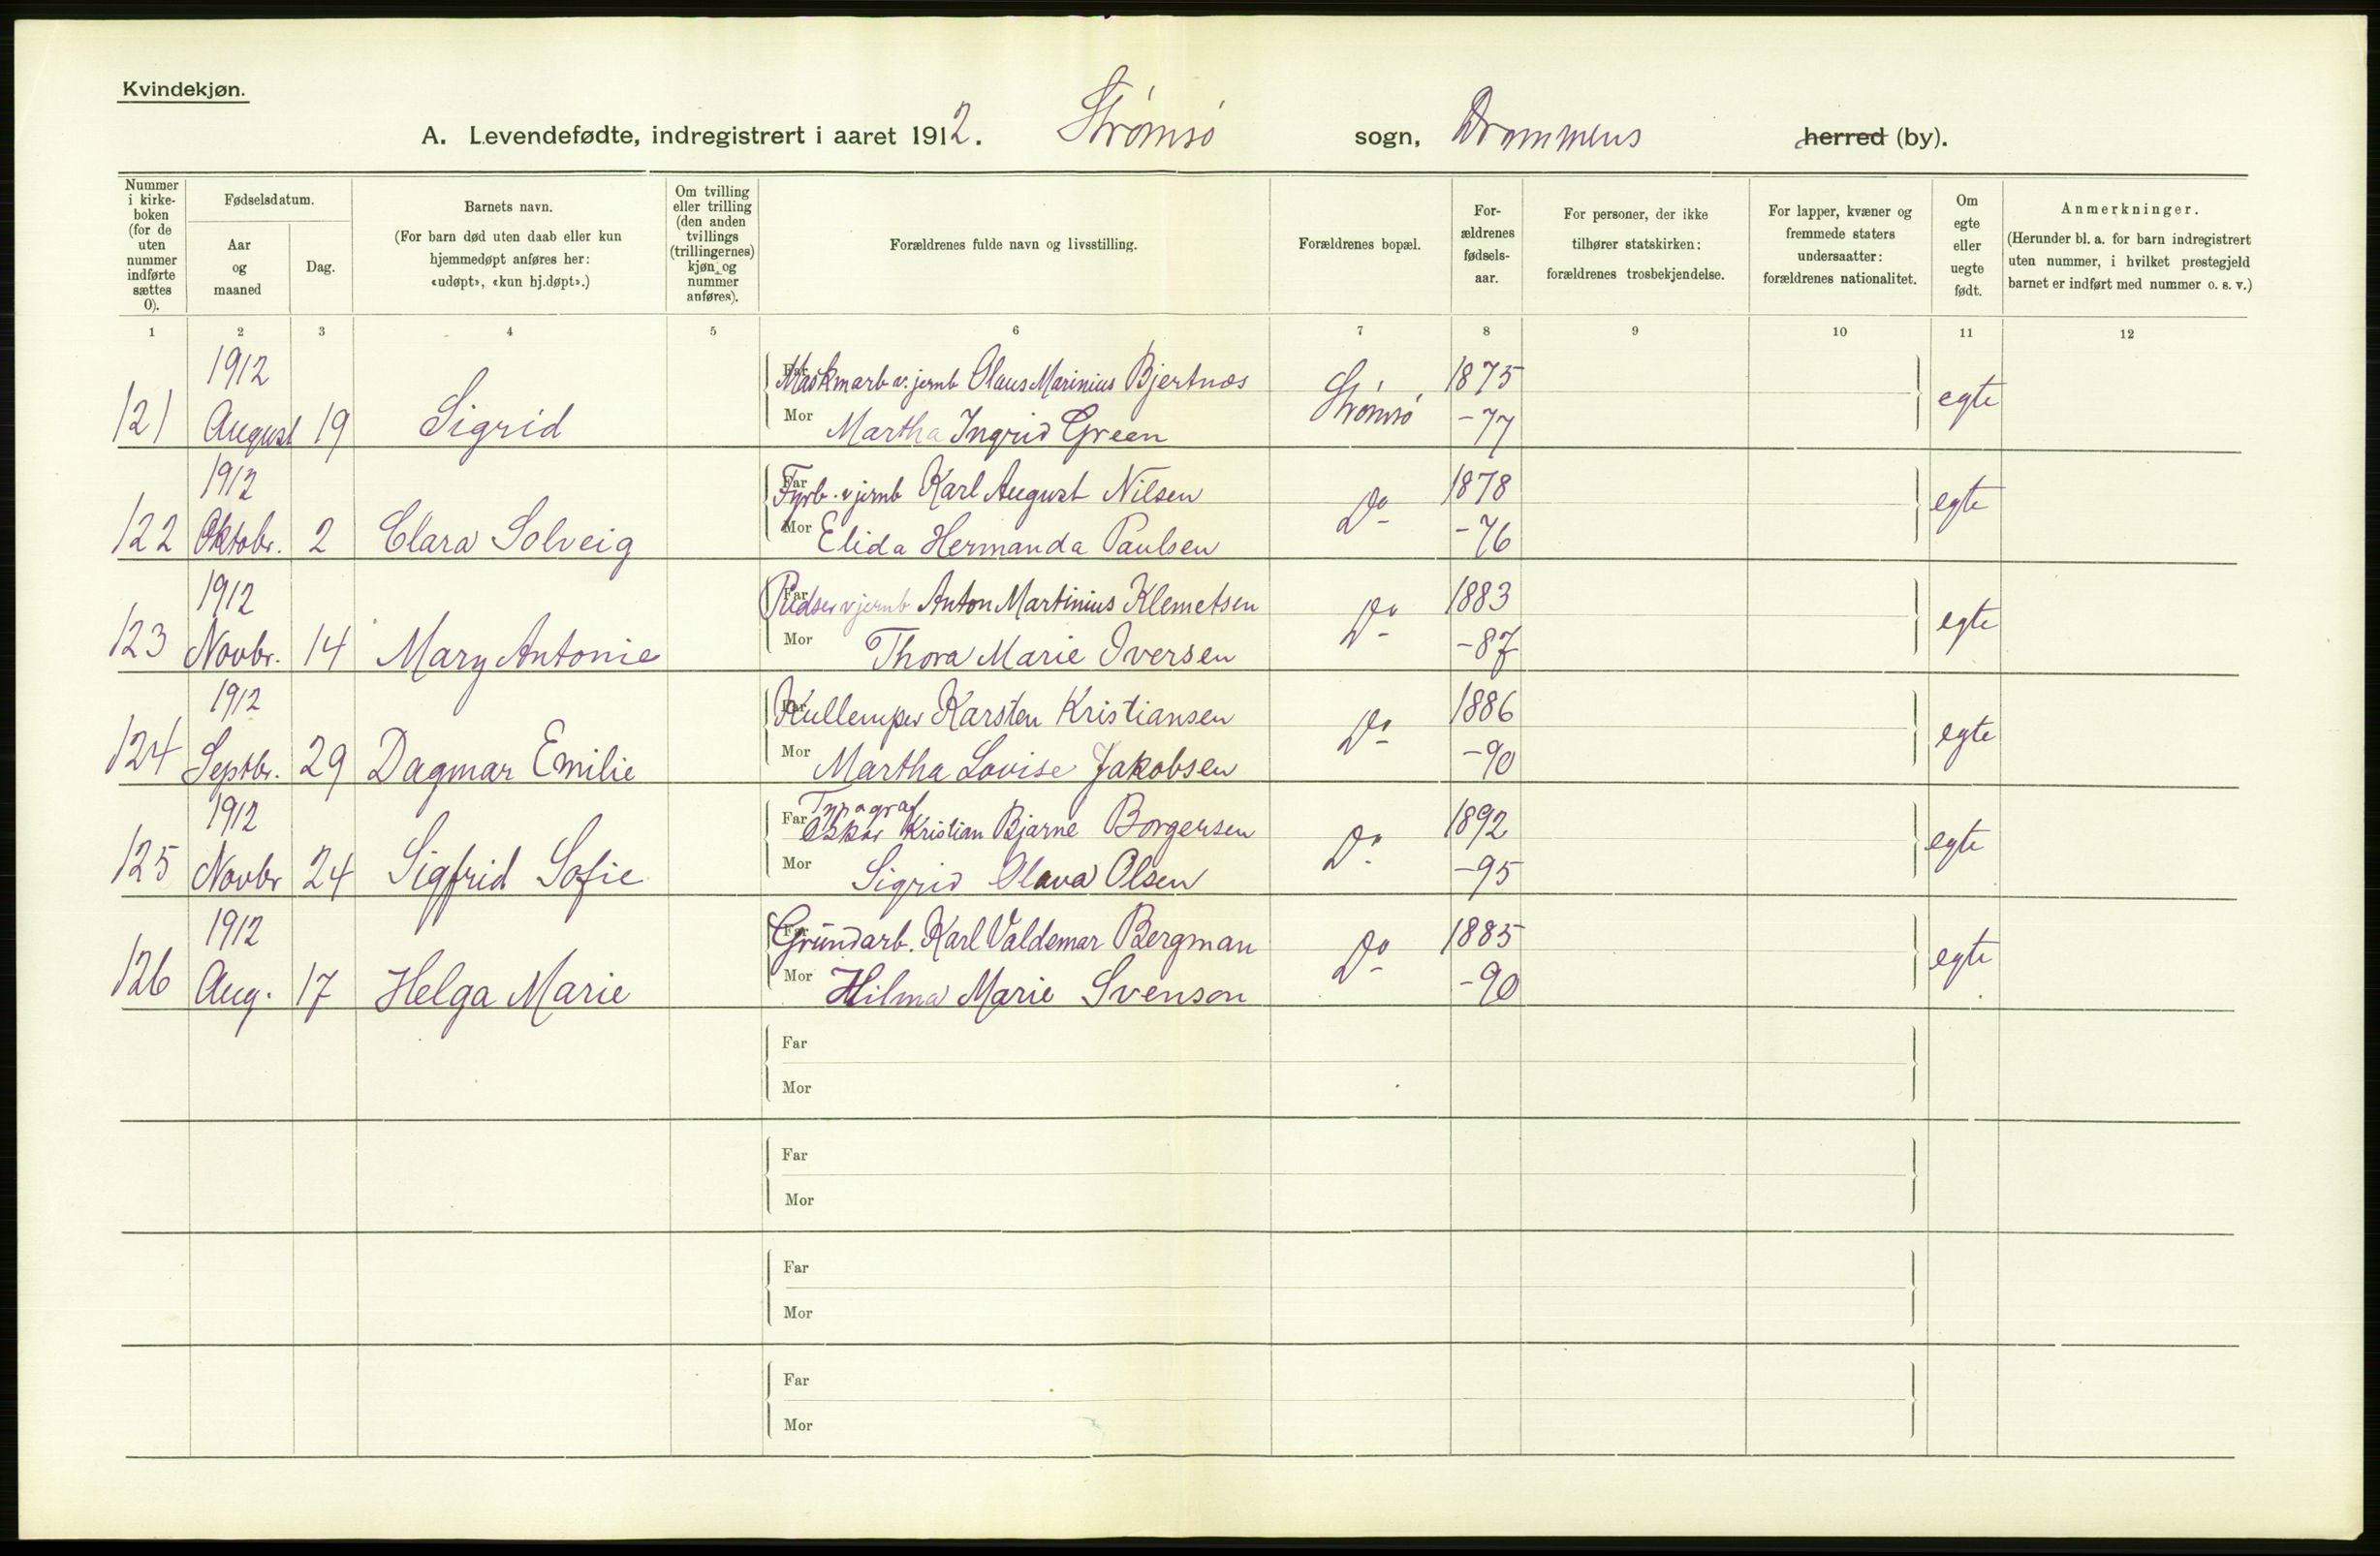 Kvindekjøn.
A. Levendefødte, indregistrert i aaret 1912. Strømsø sogn, Drammens herred (by).
Nummer i kirke-boken (for de uten nummer indførte sættes 0).
Fødselsdatum.
Aar og maaned
Dag.
Barnets navn.
(For barn død uten daab eller kun hjemmedøpt anføres her: «udøpt», «kun hj.døpt».)
Om tvilling eller trilling (den anden tvillings (trillingernes) kjøn og nummer anføres).
Forældrenes fulde navn og livsstilling.
Forældrenes bopæl.
For-ældrenes fødsels-aar.
For personer, der ikke tilhører statskirken: forældrenes trosbekjendelse.
For lapper, kvæner og fremmede staters undersaatter: forældrenes nationalitet.
Om egte eller uegte født.
Anmerkninger.
(Herunder bl. a. for barn indregistrert uten nummer, i hvilket prestegjeld barnet er indført med nummer o. s. v.)
1 2 3 4 5 6 7 8 9 10 11 12
1912 Far Maskmarb v. jernb Olaus Marinius Bjertnæs Strømsø 1875 egte
121 August 19 Sigrid Mor Martha Ingrid Green -77
1912 Far Fyrb. v jernb Karl August Nilsen Do 1878 egte
122 Oktobr. 2 Clara Solveig Mor Elida Hermanda Paulsen -76
1912 Far Pudser v jernb Anton Martinius Klemetsen Do 1883 egte
123 Novbr. 14 Mary Antonie Mor Thora Marie Iversen -87
1912 Far Kullemper Karsten Kristiansen Do 1886 egte
124 Septbr. 29 Dagmar Emilie Mor Martha Lovise Jakobsen -90
1912 Far Typograf Oskar Kristian Bjarne Borgersen Do 1892 egte
125 Novbr 24 Sigfrid Sofie Mor Sigrid Olava Olsen -95
1912 Far Grundarb. Karl Valdemar Bergman Do 1885 egte
126 Aug. 17 Helga Marie Mor Hilma Marie Svenson -90
Far
Mor
Far
Mor
Far
Mor
Far
Mor